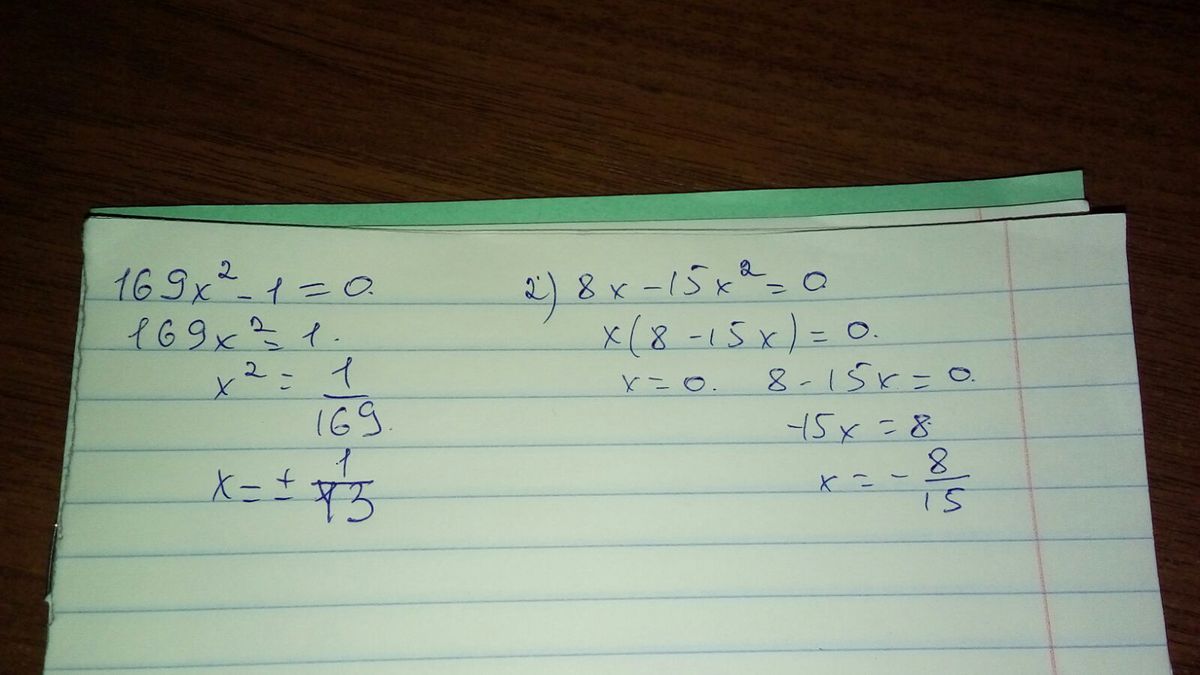 169x² - 1 = 0.
169x² = 1.
x² = 1/169.
x = ± 1/13
2) 8x - 15x² = 0
x(8 - 15x) = 0.
x = 0. 8 - 15x = 0.
-15x = 8
x = - 8/15